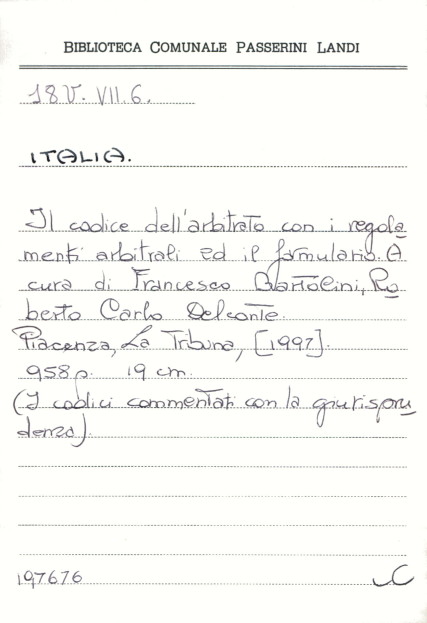 BIBLIOTECA COMUNALE PASSERINI LANDI
18 V. VII. 6.
ITALIA.
Il codice dell'arbitrato con i regola
menti arbitrali ed il formulario. A
cura di Francesco Bartolini, Ro
berto Carlo Delconte.
Piacenza, La Tribuna, [1997].
958 p. 19 cm.
(I codici commentati con la giurispru
denza).
197676